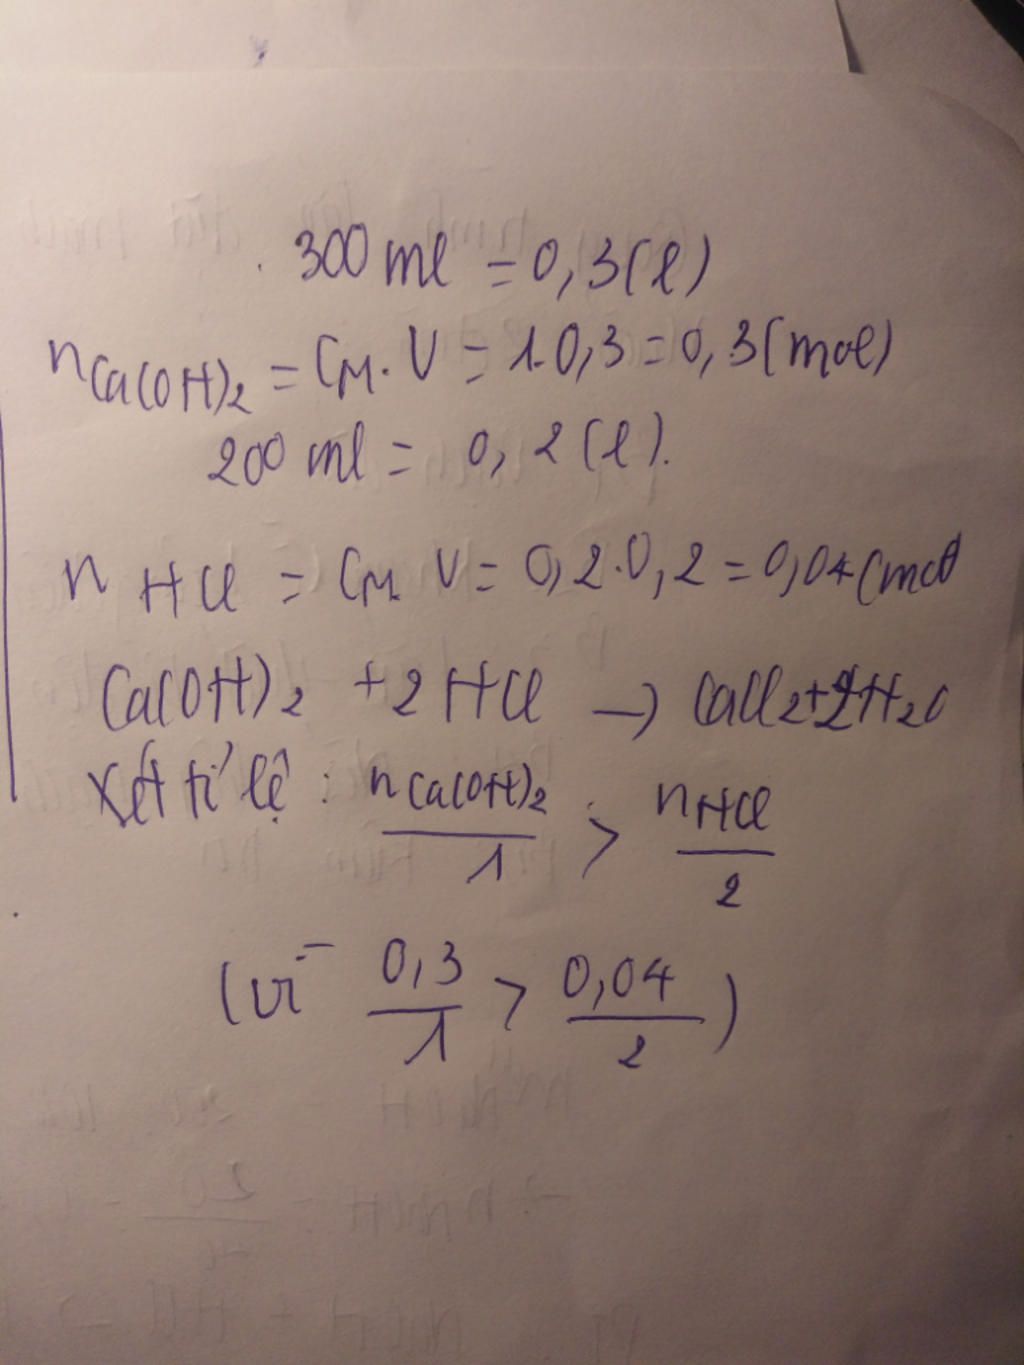 300 ml = 0,3(l)
nCa(OH)₂ = CM. V = 1.0,3 = 0,3(mol)
200 ml = 0,2(l).
n HCl = CM. V = 0,2.0,2 = 0,04(mol
Ca(OH)₂ + 2HCl → CaCl₂+2H₂O
Xét tỉ lệ : nCa(OH)₂/1 > nHCl/2
(vì 0,3/1 > 0,04/2)